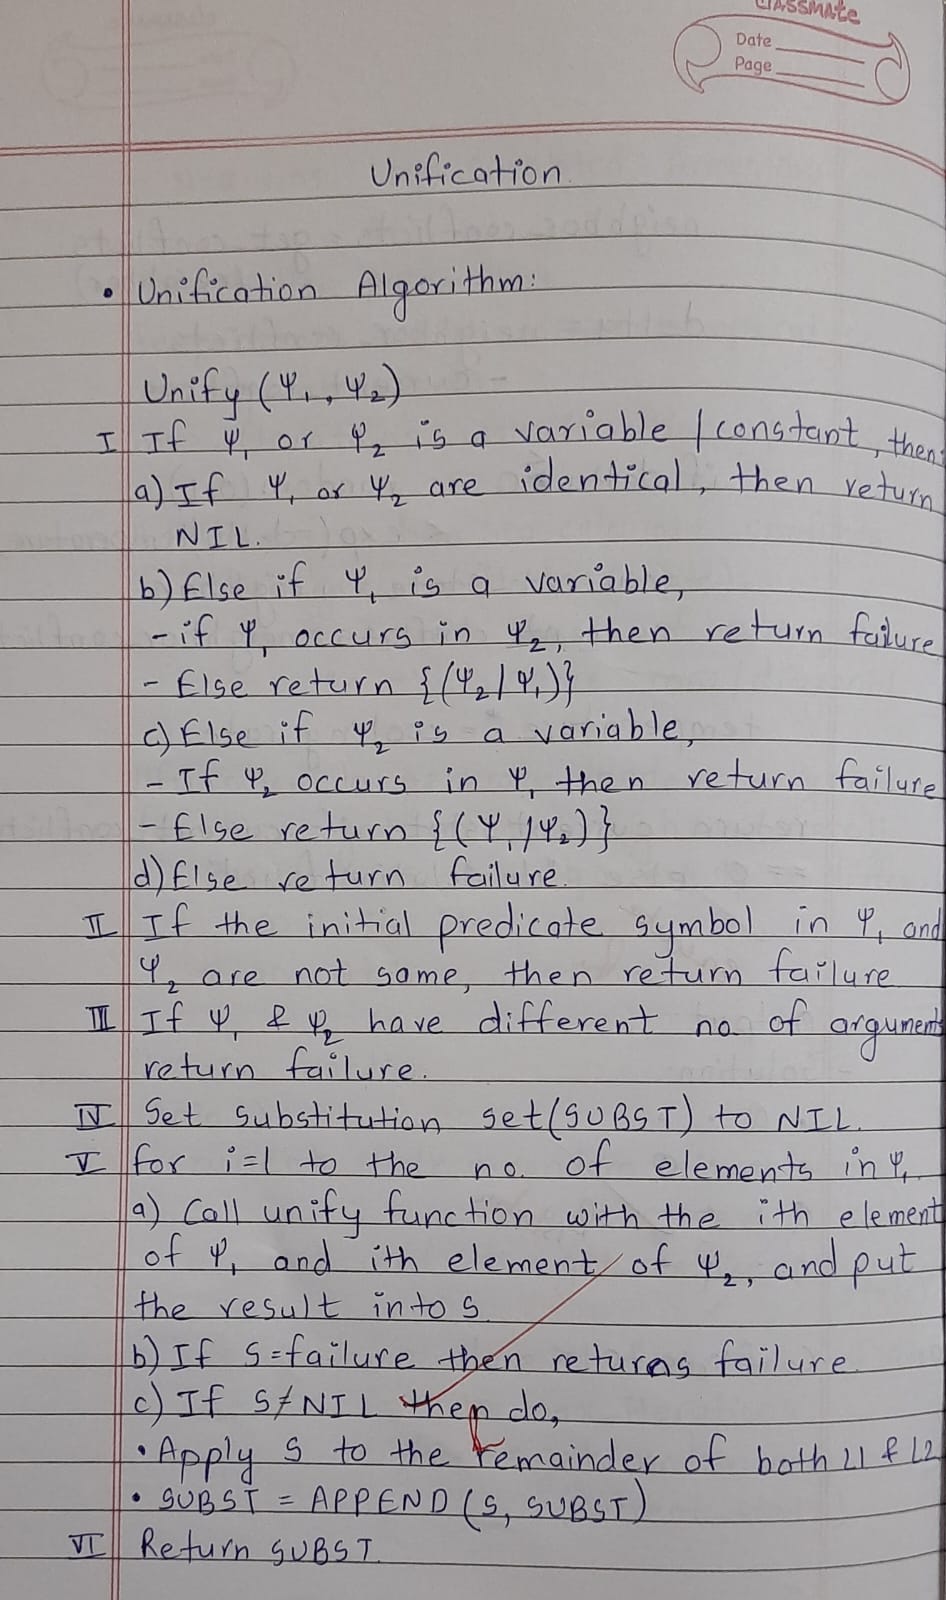 classmate
Date
Page
Unification.
• Unification Algorithm:
Unify (Ψ₁, Ψ₂)
I If Ψ₁ or Ψ₂ is a variable / constant, then:
a) If Ψ₁ or Ψ₂ are identical, then return
NIL.
b) Else if Ψ₁ is a variable,
- if Ψ₁ occurs in Ψ₂, then return failure
- Else return {(Ψ₂ / Ψ₁)}
c) Else if Ψ₂ is a variable,
- If Ψ₂ occurs in Ψ₁ then return failure
- Else return {(Ψ₁ / Ψ₂)}
d) Else return failure.
II If the initial predicate symbol in Ψ₁ and
Ψ₂ are not same, then return failure
III If Ψ₁ & Ψ₂ have different no. of arguments
return failure.
IV Set Substitution set (SUBST) to NIL.
V for i=1 to the no. of elements in Ψ₁
a) Call unify function with the ith element
of Ψ₁ and ith element of Ψ₂, and put
the result into S
b) If S = failure then returns failure
c) If S ≠ NIL then do,
• Apply S to the remainder of both L1 & L2
• SUBST = APPEND (S, SUBST)
VI Return SUBST.